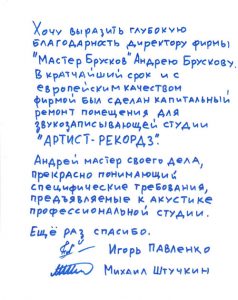 Хочу выразить глубокую
благодарность директору фирмы
"Мастер Брусков" Андрею Брускову.
В кратчайший срок и с
европейским качеством
фирмой был сделан капитальный
ремонт помещения для
звукозаписывающей студии
"АРТИСТ-РЕКОРДЗ".
Андрей мастер своего дела,
прекрасно понимающий
специфические требования,
предъявляемые к акустике
профессиональной студии.
Ещё раз спасибо.
Игорь Павленко
Михаил Штучкин